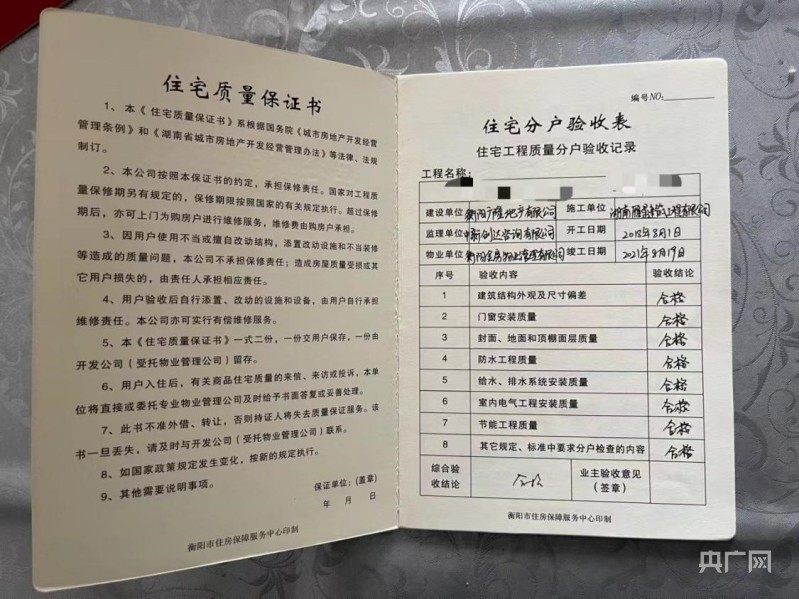 住宅质量保证书
1、本《住宅质量保证书》系根据国务院《城市房地产开发经营
管理条例》和《湖南省城市房地产开发经营管理办法》等法律、法规
制订。
2、本公司按照本保证书的约定，承担保修责任。国家对工程质
量保修期另有规定的，保修期限按照国家的有关规定执行。超过保修
期后，亦可上门为购房户进行维修服务，维修费由购房户承担。
3、因用户使用不当或擅自改动结构，添置改动设施和不当装修
等造成的质量问题，本公司不承担保修责任；造成房屋质量受损或其
它用户损失的，由责任人承担相应责任。
4、用户验收后自行添置、改动的设施和设备，由用户自行承担
维修责任。本公司亦可实行有偿维修服务。
5、本《住宅质量保证书》一式二份，一份交用户保存，一份由
开发公司（受托物业管理公司）留存。
6、用户入住后，有关商品住宅质量的来信、来访或投诉，本单
位将直接或委托专业物业管理公司及时给予书面答复或妥善处理。
7、此书不准外借、转让，否则持证人将失去质量保证服务。该
书一旦丢失，请及时与开发公司（受托物业管理公司）联系。
8、如国家政策规定发生变化，按新的规定执行。
9、其他需要说明事项。
保证单位：（盖章）
年 月 日
衡阳市住房保障服务中心印制
编号NO:
住宅分户验收表
住宅工程质量分户验收记录
工程名称：
建设单位 衡阳 隆地产有限公司 施工单位 湖南 工程有限公司
监理单位 中新创达咨询有限公司 开工日期 2018年8月1日
物业单位 衡阳 物业管理有限公司 竣工日期 2021年8月19日
序号 验收内容 验收结论
1 建筑结构外观及尺寸偏差 合格
2 门窗安装质量 合格
3 封面、地面和顶棚面层质量 合格
4 防水工程质量 合格
5 给水、排水系统安装质量 合格
6 室内电气工程安装质量 合格
7 节能工程质量 合格
8 其它规定、标准中要求分户检查的内容 合格
综合验收结论 合格 业主验收意见（签章）
衡阳市住房保障服务中心印制
央广网